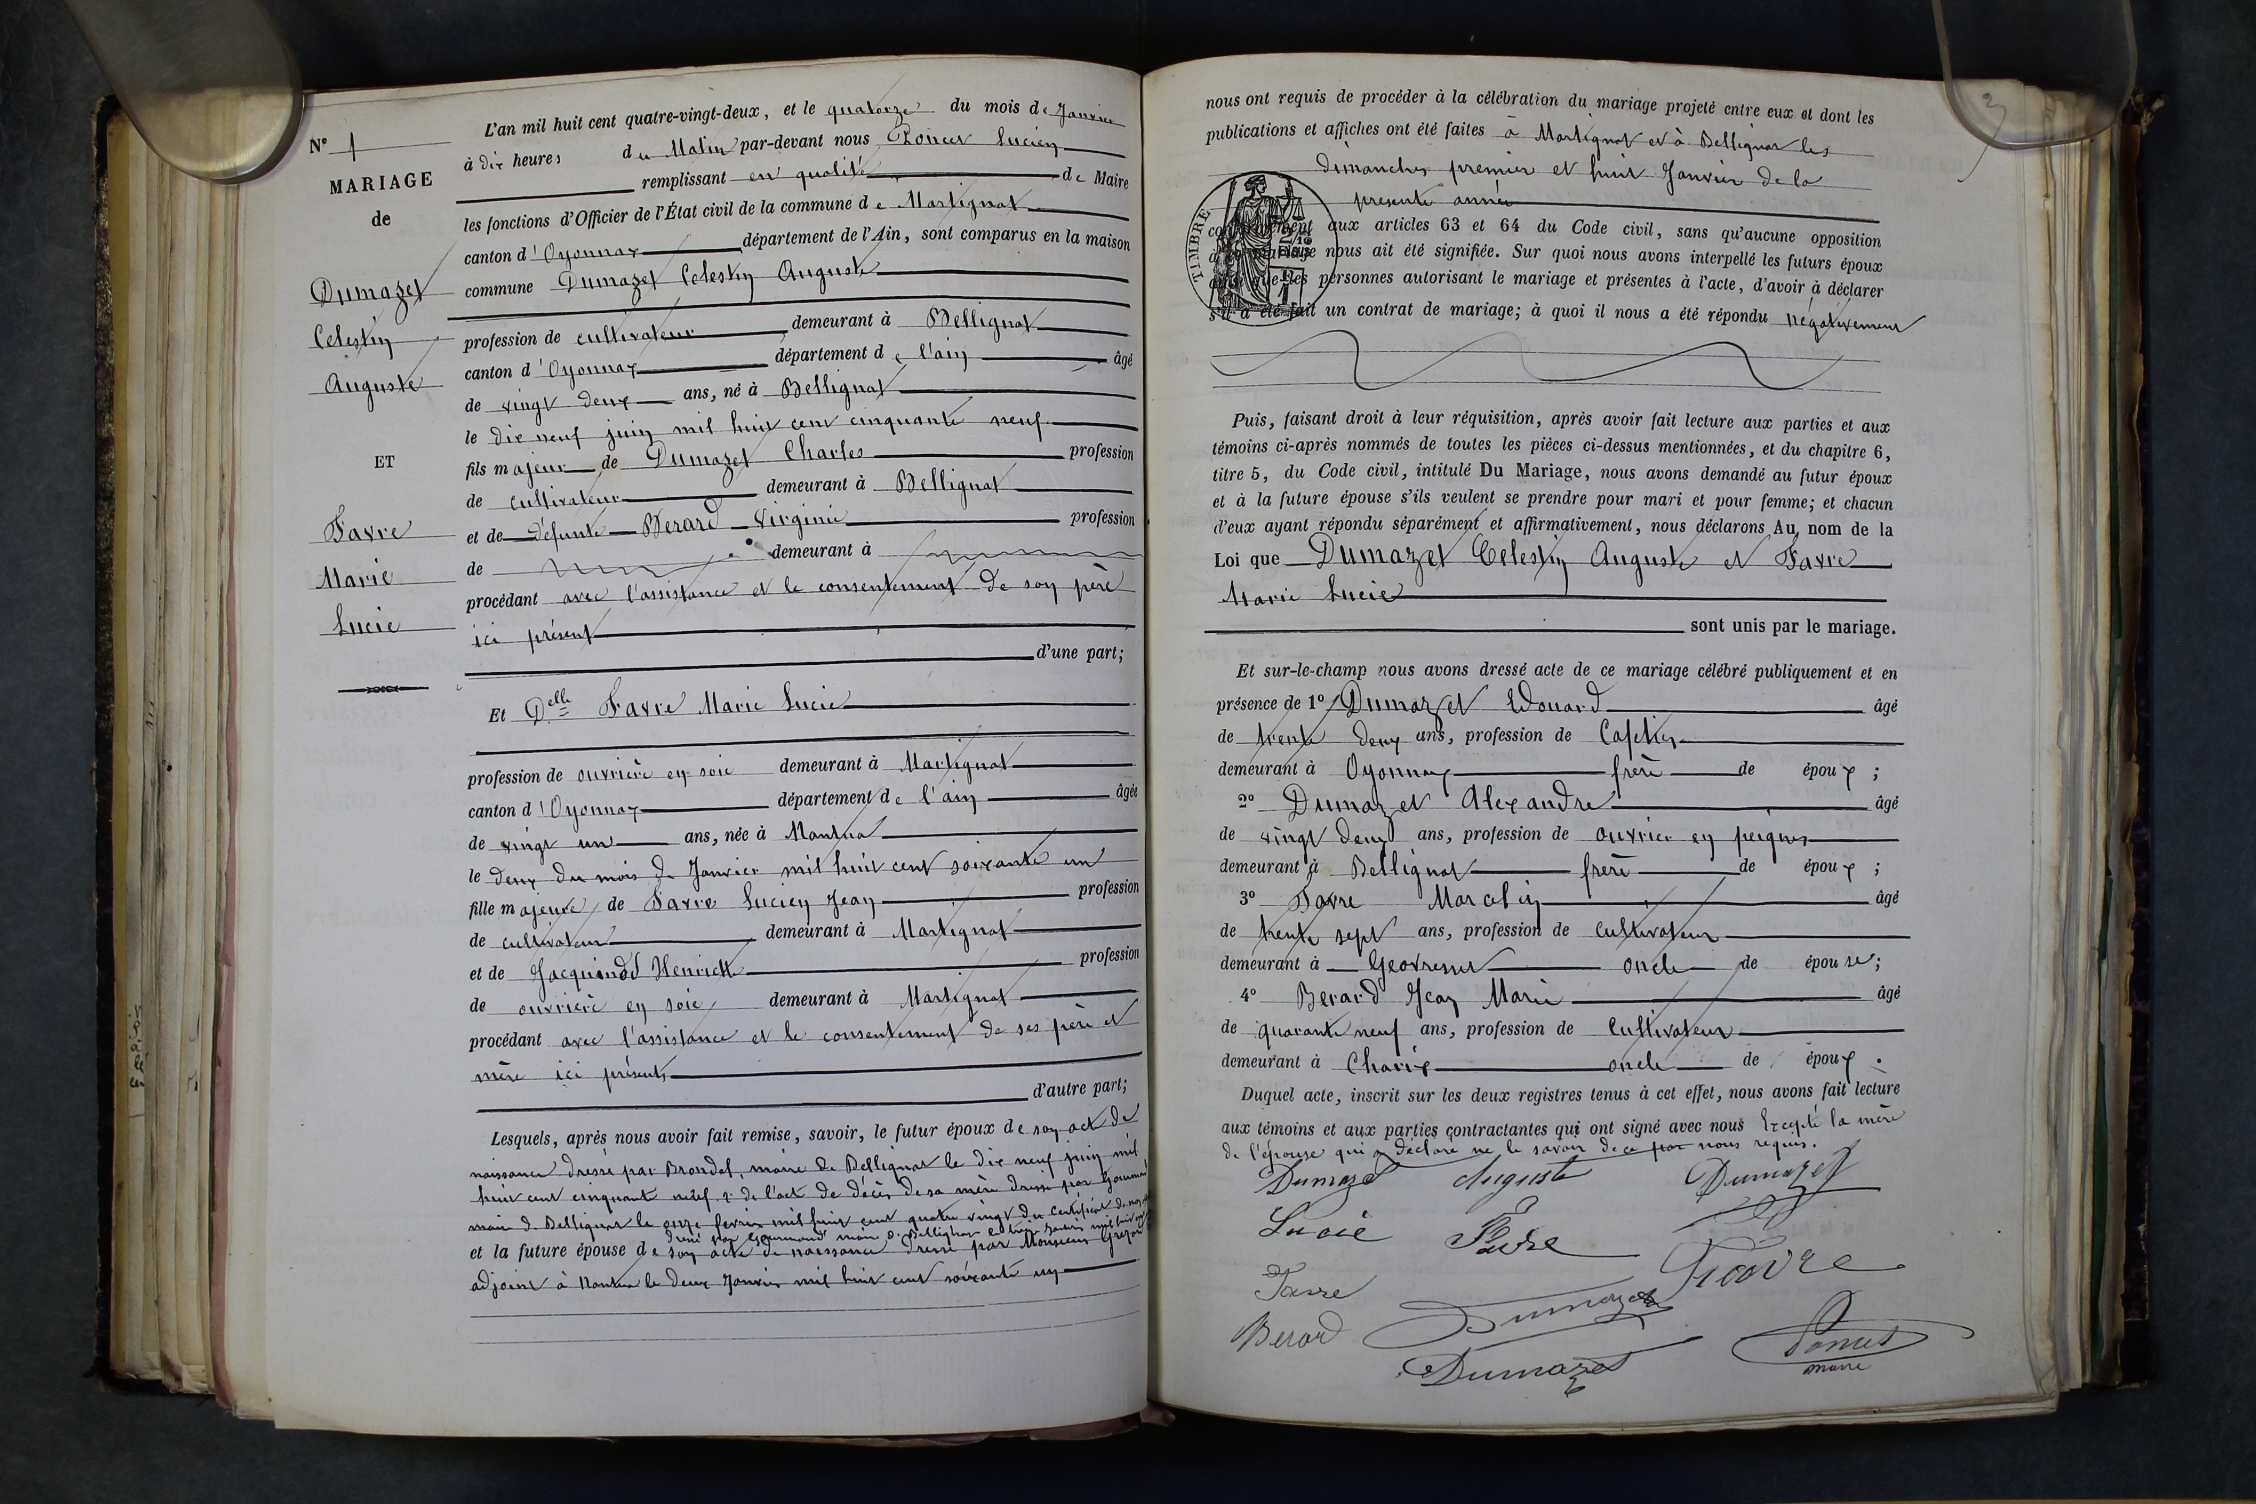 N° 1
MARIAGE
de
Dumazet
Celestin
Auguste
ET
Favre
Marie
Lucie
L'an mil huit cent quatre-vingt-deux, et le quatorze du mois de Janvier
à dix heures du Matin par-devant nous Poncet Lucien
remplissant en qualité de Maire
les fonctions d'Officier de l'État civil de la commune de Martignat
canton d'Oyonnax département de l'Ain, sont comparus en la maison
commune Dumazet Celestin Auguste
profession de cultivateur demeurant à Bellignat
canton d'Oyonnax département de l'ain âgé
de vingt deux ans, né à Bellignat
le dix neuf juin mil huit cent cinquante neuf
fils majeur de Dumazet Charles profession
de cultivateur demeurant à Bellignat
et de défunte Berard Virginie profession
de demeurant à
procédant avec l'assistance et le consentement de son père
ici présent
d'une part;
Et Delle Favre Marie Lucie
profession de ouvrière en soie demeurant à Martignat
canton d'Oyonnax département de l'ain âgée
de vingt un ans, née à Nantua
le deux du mois de Janvier mil huit cent soixante un
fille majeure de Favre Lucien Jean profession
de cultivateur demeurant à Martignat
et de Jacquinod Henriette profession
de ouvrière en soie demeurant à Martignat
procédant avec l'assistance et le consentement de ses père et
mère ici présents
d'autre part;
Lesquels, après nous avoir fait remise, savoir, le futur époux de son acte de
naissance dressé par Brondel, maire de Bellignat le dix neuf juin mil
huit cent cinquante neuf de l'acte de décès de sa mère dressé par Gourmand
maire de Bellignat le onze fevrier mil huit cent quatre vingt du certificat de
dressé par Gourmand maire de Bellignat le treize Janvier mil huit
et la future épouse de son acte de naissance dressé par Monsieur
adjoint à Nantua le deux Janvier mil huit cent soixante un
3
nous ont requis de procéder à la célébration du mariage projeté entre eux et dont les
publications et affiches ont été faites à Martignat et à Bellignat les
dimanches premier et huit Janvier de la
presente année
TIMBRE
conformément aux articles 63 et 64 du Code civil, sans qu'aucune opposition
à ce mariage nous ait été signifiée. Sur quoi nous avons interpellé les futurs époux
ainsi que les personnes autorisant le mariage et présentes à l'acte, d'avoir à déclarer
s'il a été fait un contrat de mariage; à quoi il nous a été répondu négativement
Puis, faisant droit à leur réquisition, après avoir fait lecture aux parties et aux
témoins ci-après nommés de toutes les pièces ci-dessus mentionnées, et du chapitre 6,
titre 5, du Code civil, intitulé Du Mariage, nous avons demandé au futur époux
et à la future épouse s'ils veulent se prendre pour mari et pour femme; et chacun
d'eux ayant répondu séparément et affirmativement, nous déclarons Au nom de la
Loi que Dumazet Celestin Auguste et Favre
Marie Lucie
sont unis par le mariage.
Et sur-le-champ nous avons dressé acte de ce mariage célébré publiquement et en
présence de 1° Dumazet Edouard âgé
de trente deux ans, profession de Cafetier
demeurant à Oyonnax frère de époux;
2° Dumazet Alexandre âgé
de vingt deux ans, profession de ouvrier en peignes
demeurant à Bellignat frère de époux;
3° Favre Marcelin âgé
de trente sept ans, profession de cultivateur
demeurant à Geovresset oncle de épouse;
4° Berard Jean Marie âgé
de quarante neuf ans, profession de Cultivateur
demeurant à Charix oncle de époux.
Duquel acte, inscrit sur les deux registres tenus à cet effet, nous avons fait lecture
aux témoins et aux parties contractantes qui ont signé avec nous Excepté la mère
de l'épouse qui a déclaré ne le savoir de ce par nous requis.
Dumazet Auguste Dumazet
Lucie Favre
Favre
Favre
Dumazet
Berard
Dumazet
Poncet
maire